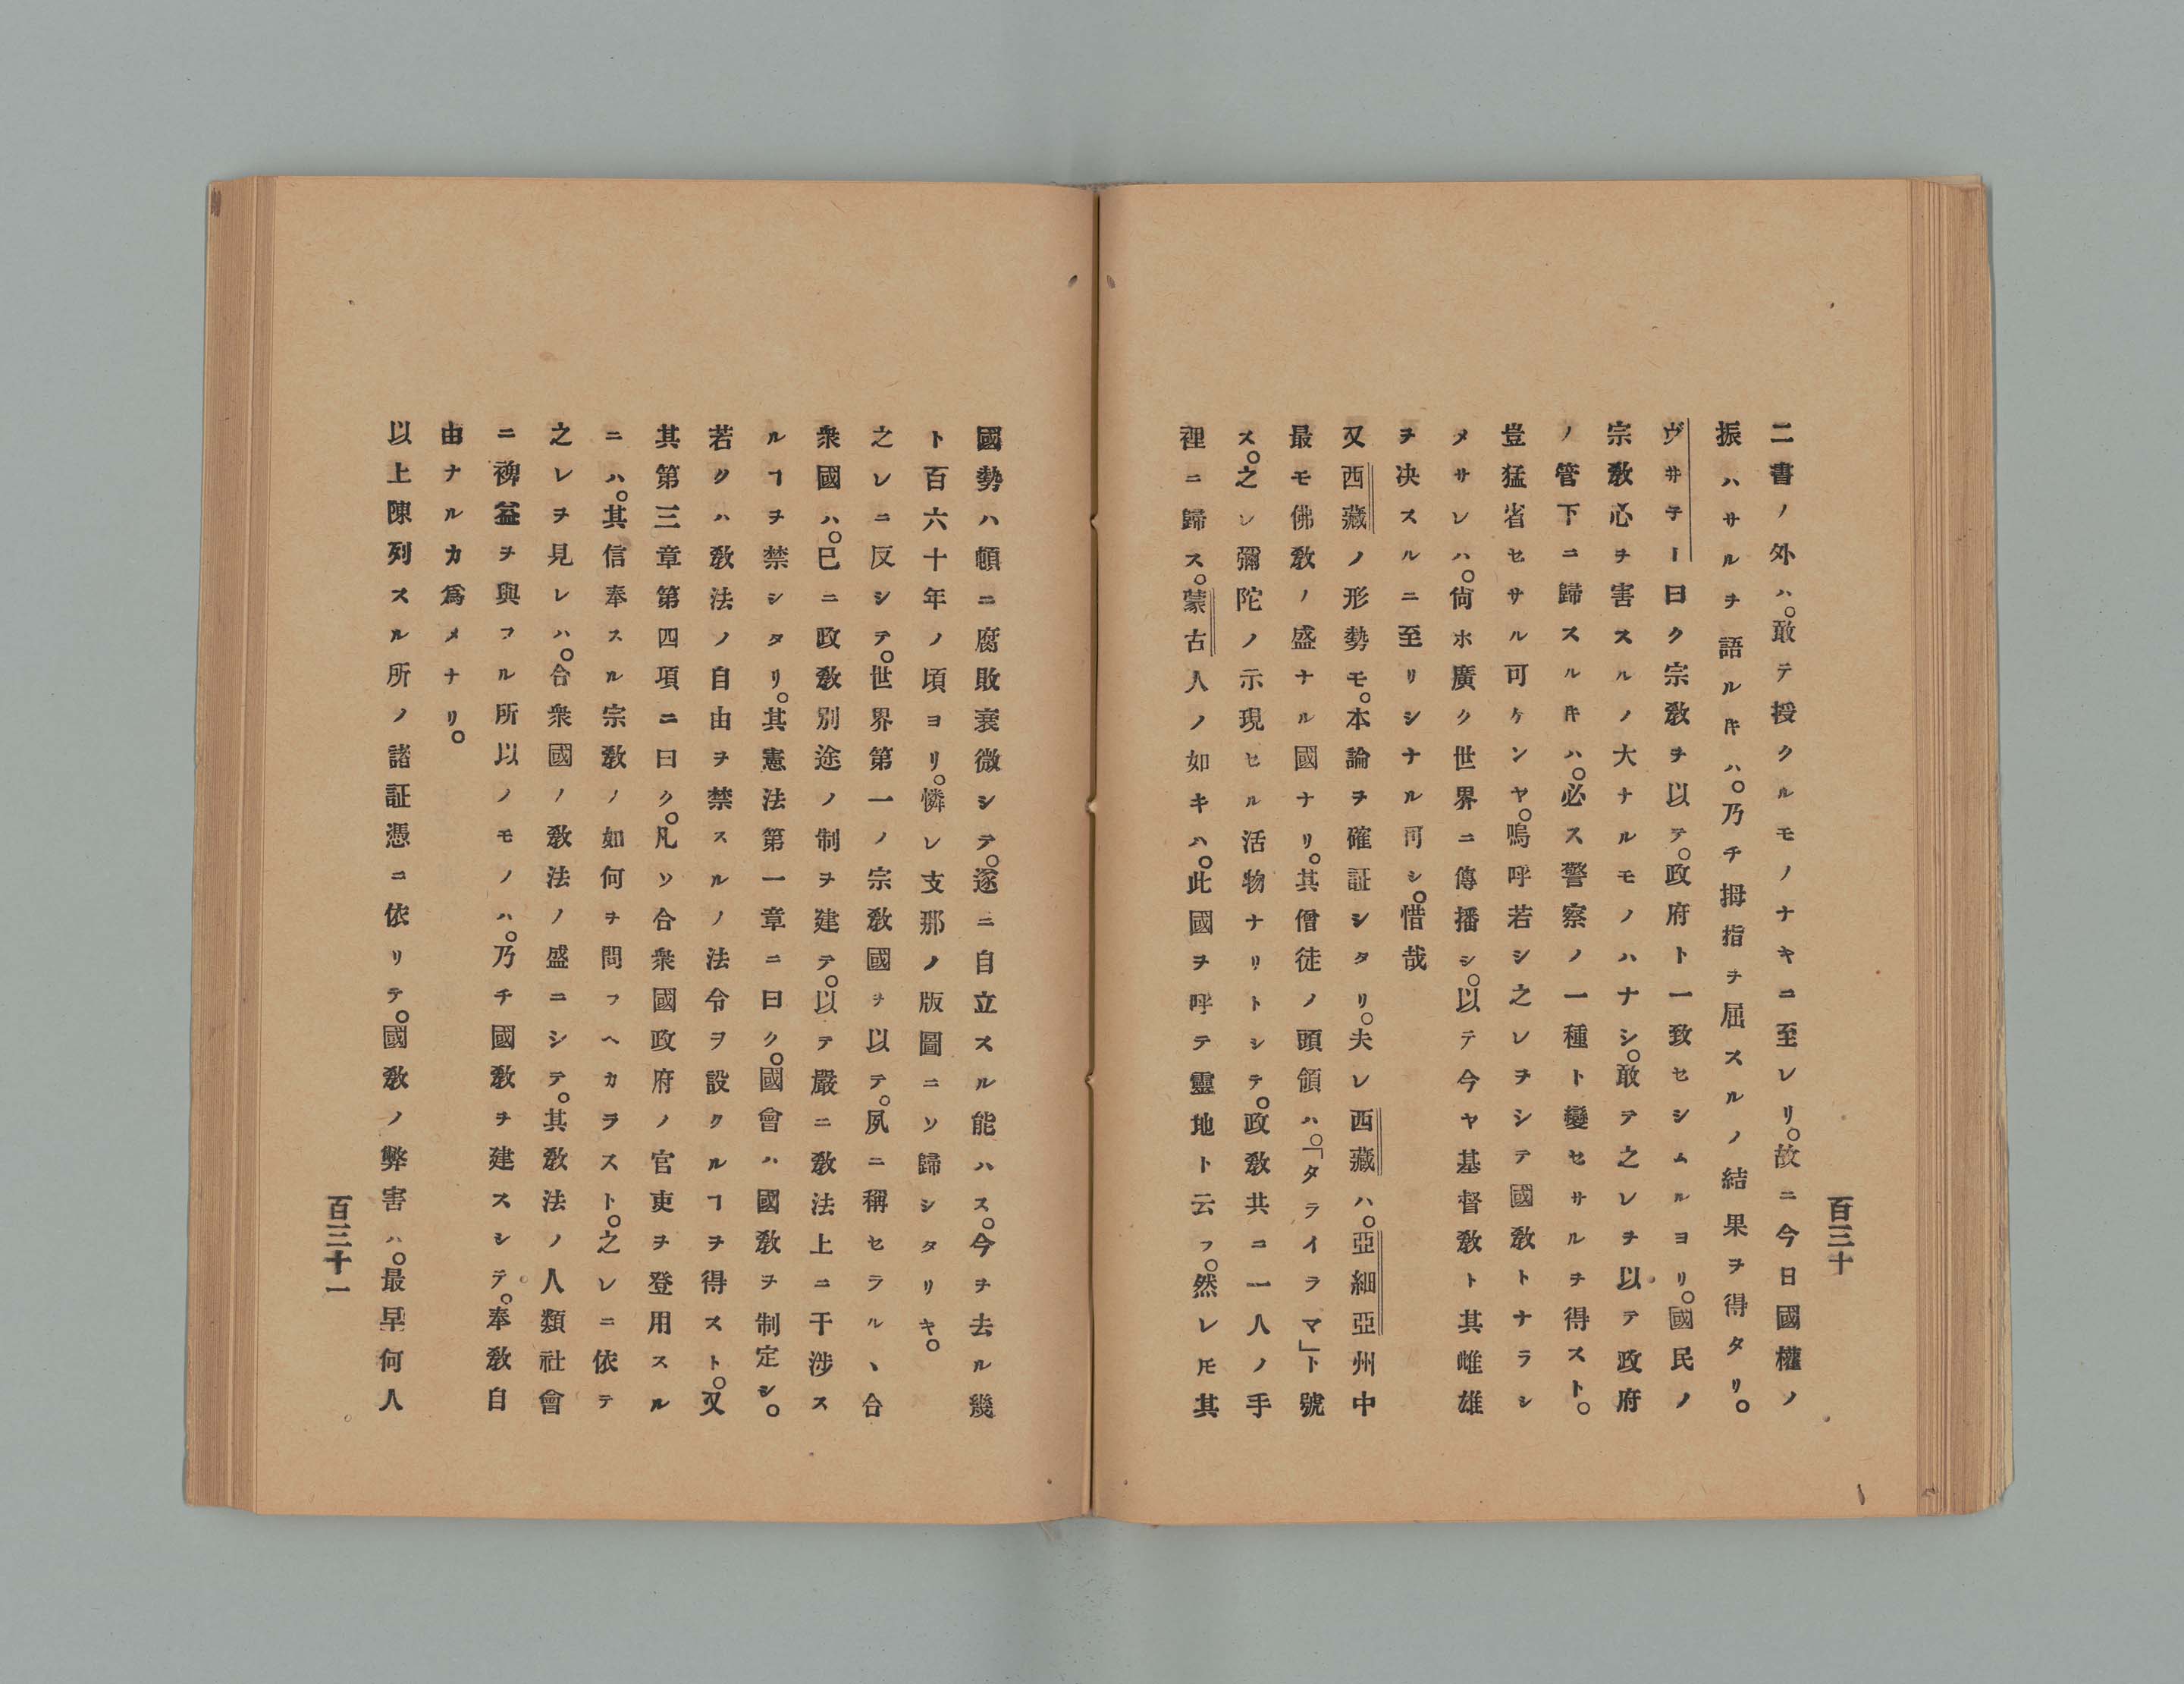 百三十
二書ノ外ハ。敢テ授クルモノナキニ至レリ。故ニ今日國權ノ
振ハサルヲ語ルㇳキハ。乃チ拇指ヲ屈スルノ結果ヲ得タリ。
ヴサヲー曰ク宗敎ヲ以テ。政府ト一致セシムルヨリ。國民ノ
宗敎心ヲ害スルノ大ナルモノハナシ。敢テ之レヲ以テ政府
ノ管下ニ歸スルㇳキハ。必ス警察ノ一種ト變セサルヲ得スト。
豈猛省セサル可ケンヤ。嗚呼若シ之レヲシテ國敎トナラシ
メサレハ。尙ホ廣ク世界ニ傳播シ。以テ今ヤ基督敎ト其雌雄
ヲ决スルニ至リシナル可シ。惜哉
又西藏ノ形勢モ。本論ヲ確証シタリ。夫レ西藏ハ。亞細亞州中
最モ佛敎ノ盛ナル國ナリ。其僧徒ノ頭領ハ。「タライラマ」ト號
ス。之レ彌陀ノ示現セル活物ナリトシテ。政敎共ニ一人ノ手
裡ニ歸ス。蒙古人ノ如キハ。此國ヲ呼テ靈地ト云フ。然レㇳモ其
國勢ハ頓ニ腐敗衰微シテ。遂ニ自立スル能ハス。今ヲ去ル幾
ト百六十年ノ頃ヨリ。憐レ支那ノ版圖ニソ歸シタリキ。
之レニ反シテ。世界第一ノ宗敎國ヲ以テ。夙ニ稱セラルヽ合
衆國ハ。已ニ政敎別途ノ制ヲ建テ。以テ嚴ニ敎法上ニ干涉ス
ルヿヲ禁シタリ。其憲法第一章ニ曰ク。國會ハ國敎ヲ制定シ。
若クハ敎法ノ自由ヲ禁スルノ法令ヲ設クルヿヲ得スト。又
其第三章第四項ニ曰ク。凡ソ合衆國政府ノ官吏ヲ登用スル
ニハ。其信奉スル宗敎ノ如何ヲ問フヘカラスト。之レニ依テ
之レヲ見レハ。合衆國ノ敎法ノ盛ニシテ。其敎法ノ人類社會
ニ裨益ヲ與フル所以ノモノハ。乃チ國敎ヲ建スシテ。奉敎自
由ナルカ爲メナリ。
以上陳列スル所ノ諸証憑ニ依リテ。國敎ノ弊害ハ。最早何人
百三十一